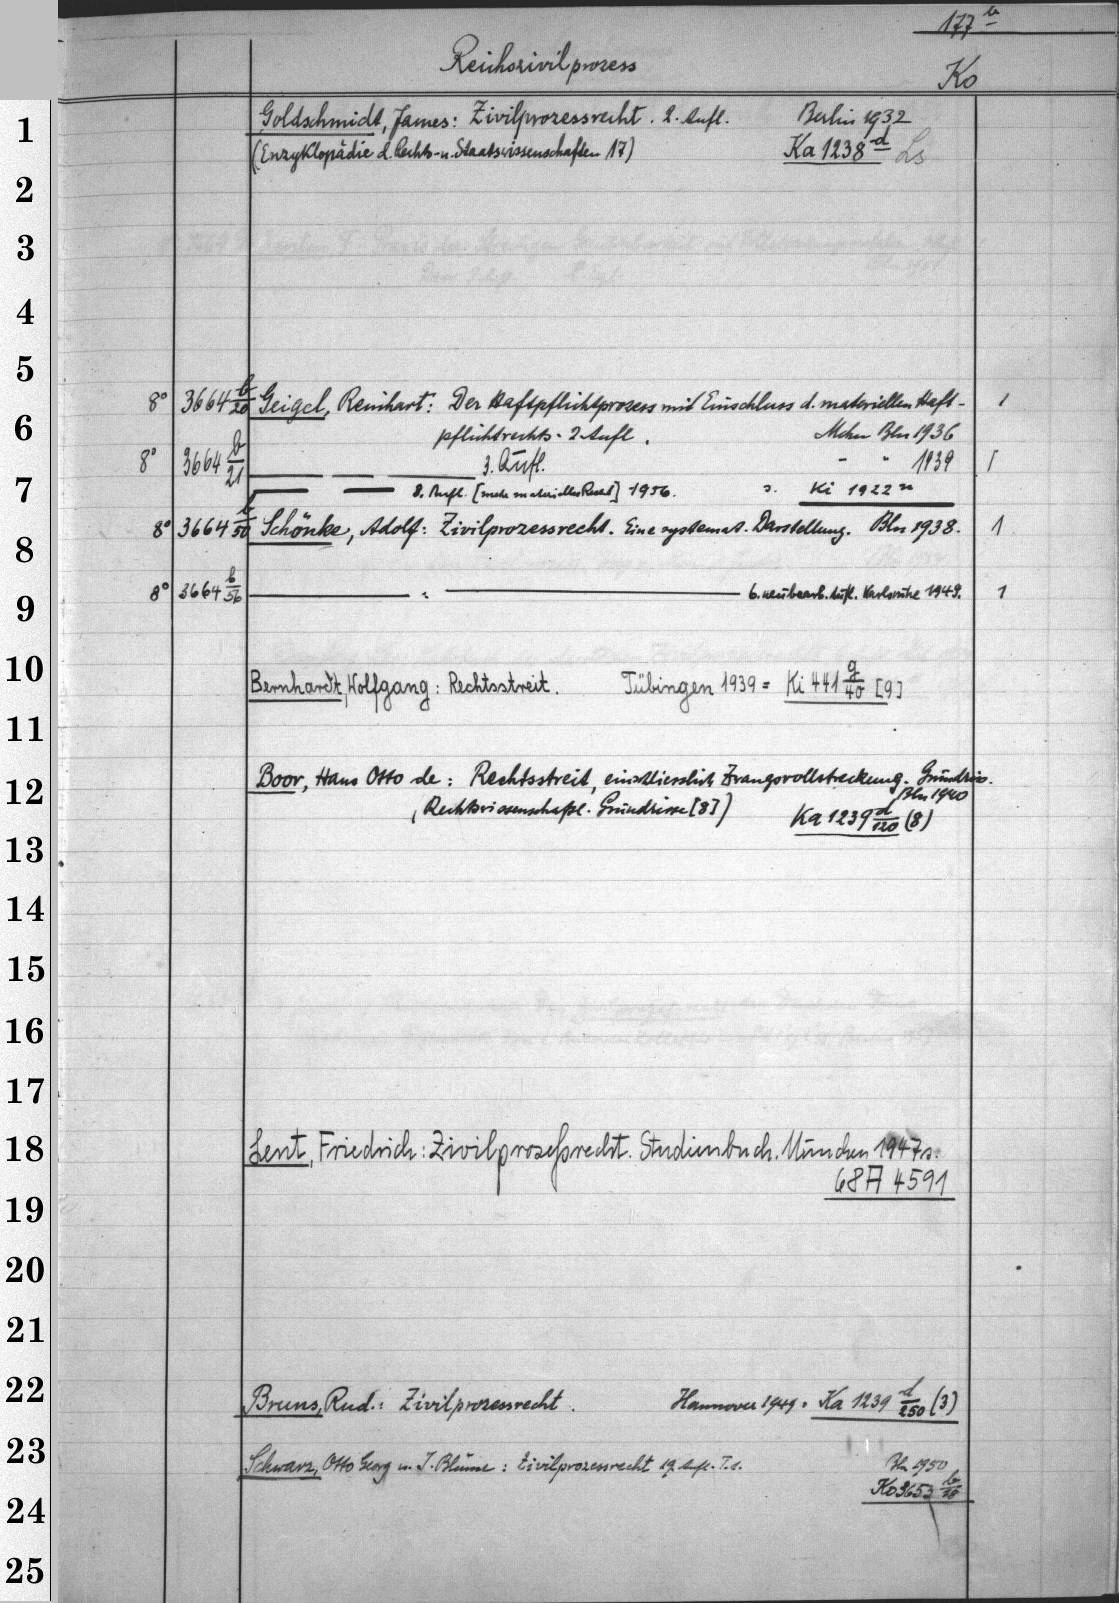 177 b
Reichszivilprozess
Ko
1 Goldschmidt, James: Zivilprozessrecht. 2. Aufl. Berlin 1932
(Enzyklopädie d. Rechts- u. Staatswissenschaften 17) Ka 1238 d Ls
2
3
4
5
8° 3664 b/20 Geigel, Reinhart: Der Haftpflichtprozess mit Einschluss d. materiellen Haft- 1
6 pflichtrechts. 2. Aufl. Mchn Bln 1936
8° 3664 b/21 3. Aufl. - " 1939 1
7 8. Aufl. [mehr materielles Recht] 1956. s. Ki 1922 n
8° 3664 b/50 Schönke, Adolf: Zivilprozessrecht. Eine systemat. Darstellung. Bln 1938. 1
8
8° 3664 b/56 " 6. neubearb. Aufl. Karlsruhe 1949. 1
9
10 Bernhardt, Wolfgang: Rechtsstreit. Tübingen 1939 = Ki 441 g/40 [9]
11
12 Boor, Hans Otto de: Rechtsstreit, einschliesslich Zwangsvollstreckung. Grundriss.
Bln 1940
(Rechtswissenschaftl. Grundrisse [8]) Ka 1239 d/120 (8)
13
14
15
16
17
18 Lent, Friedrich: Zivilprozeßrecht. Studienbuch. München 1947 s.
68 A 4591
19
20
21
22 Bruns, Rud.: Zivilprozessrecht. Hannover 1949. Ka 1239 d/250 (3)
23 Schwarz, Otto Georg u. J. Blume: Zivilprozessrecht 19. Aufl. T. 1. Bln 1950
Ko 3653 b/10
24
25